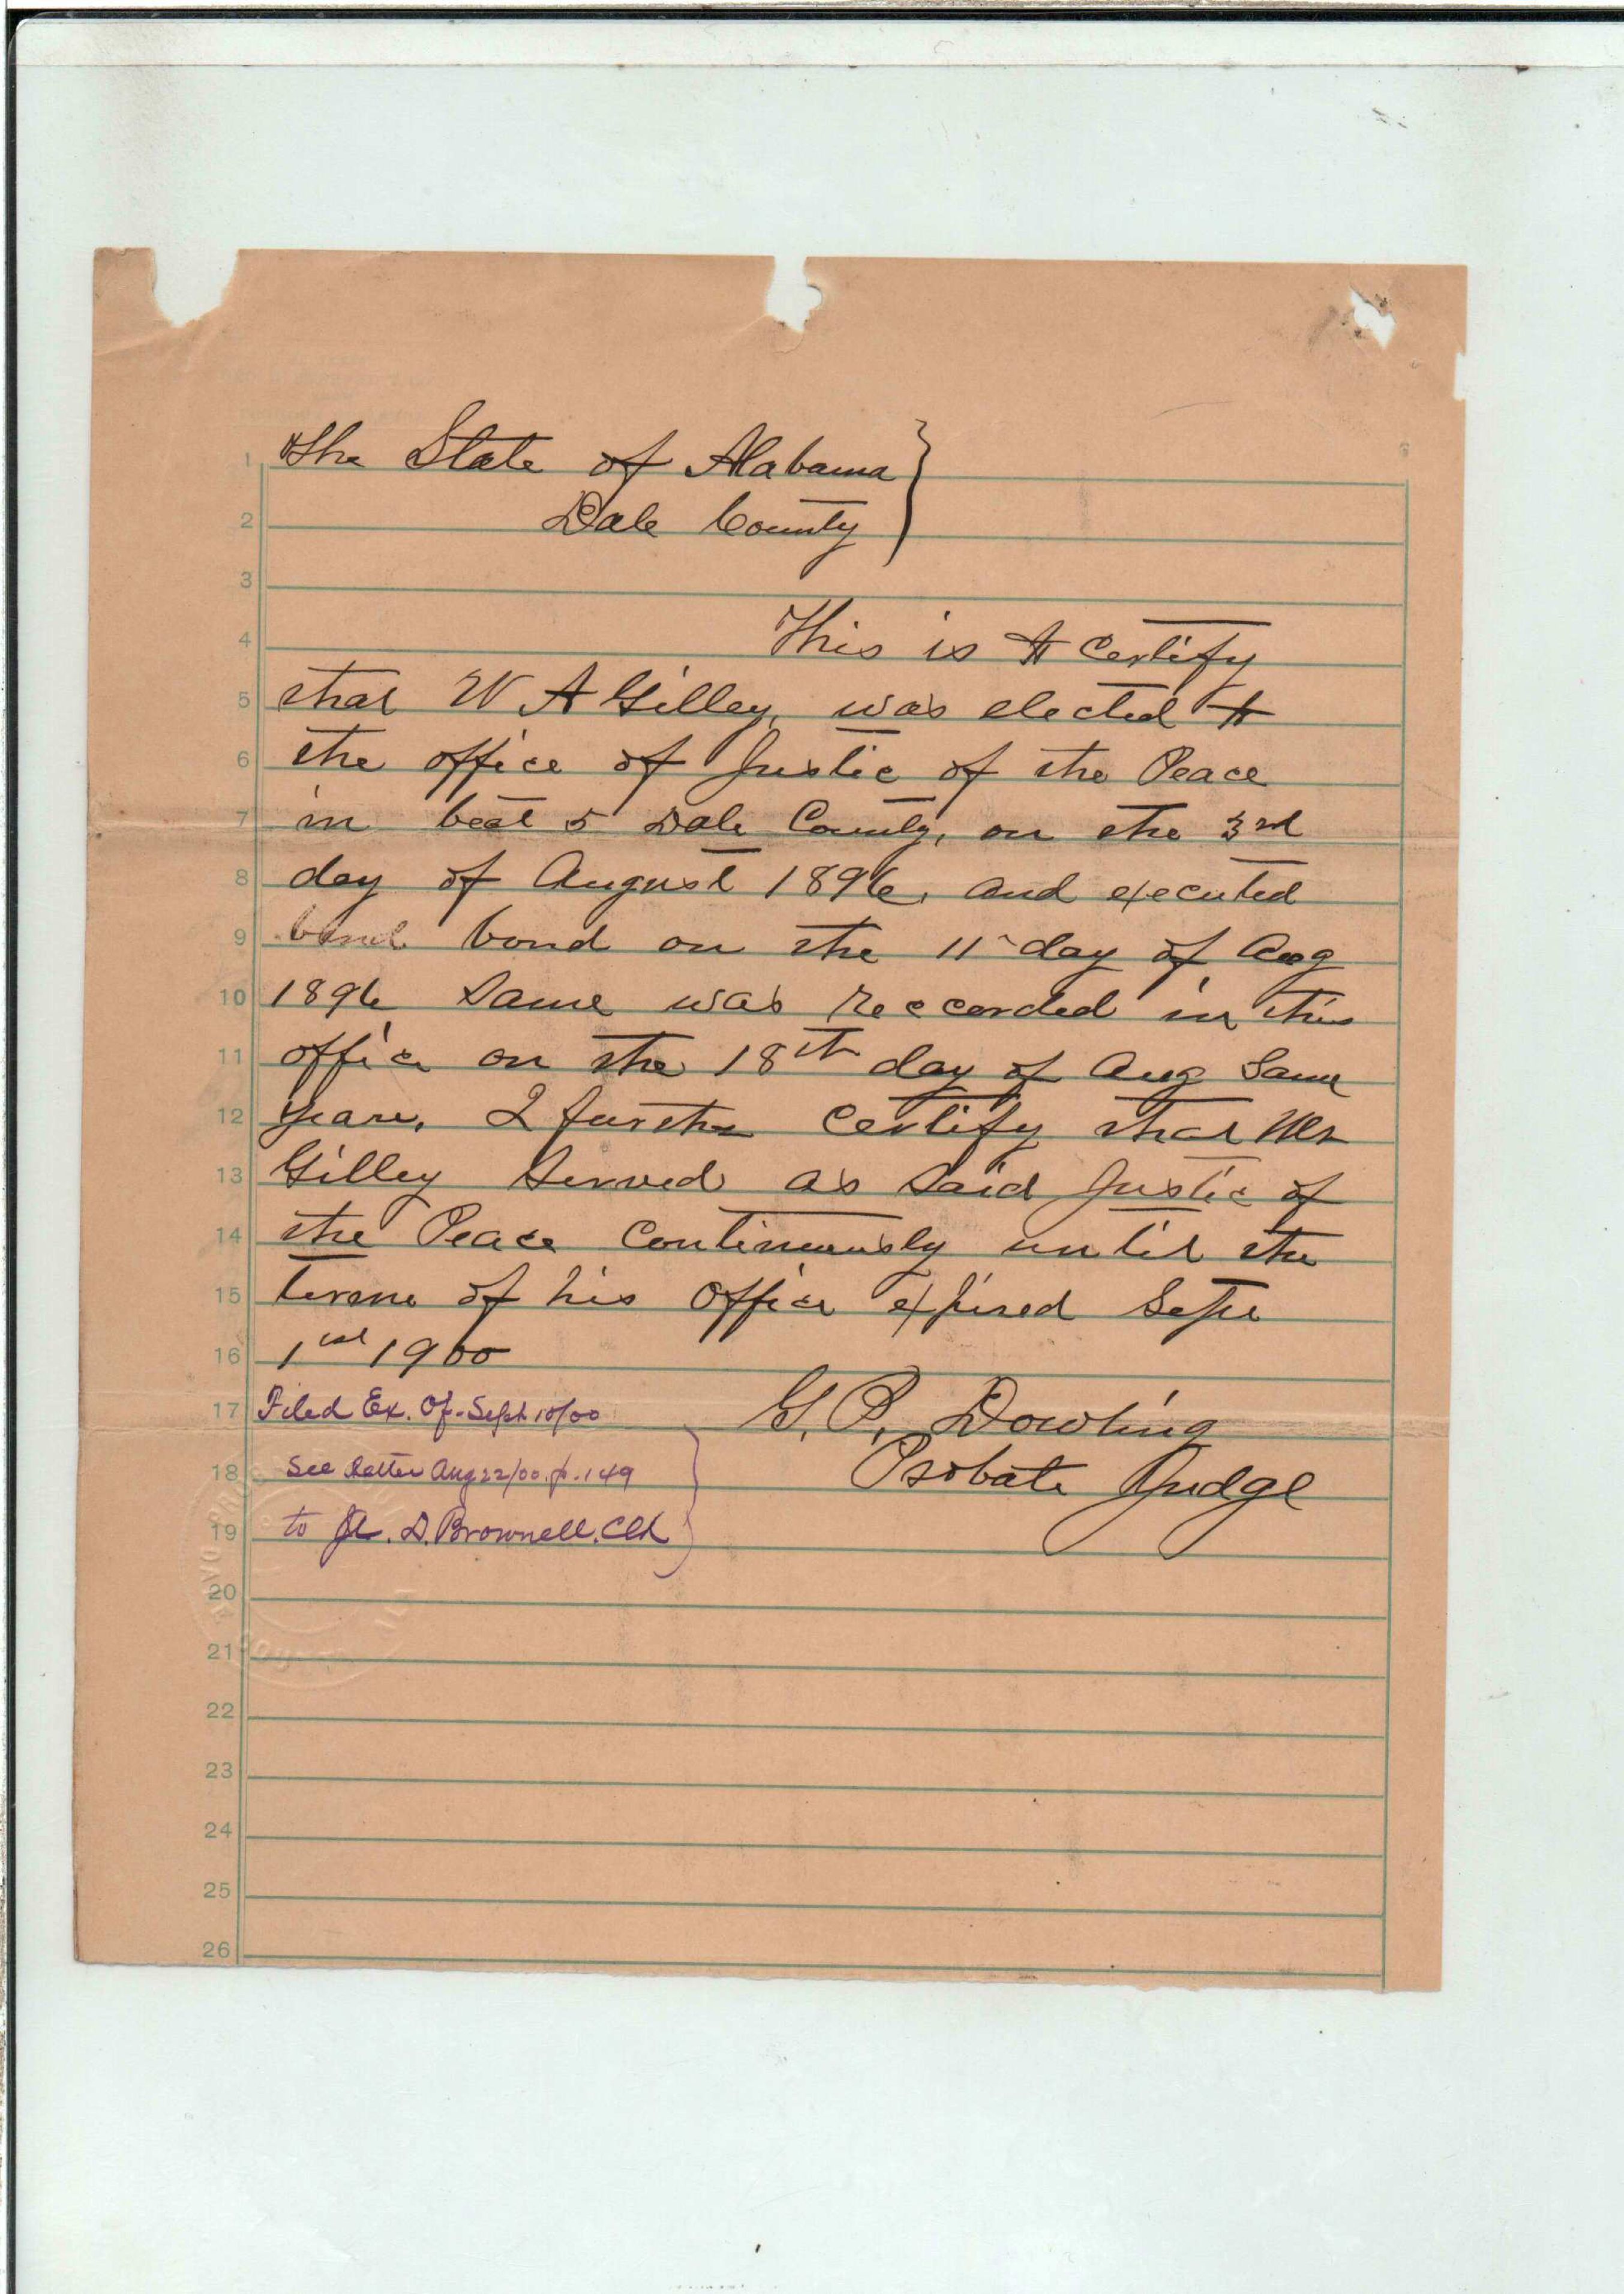 The State of Alabama }
Dale County }
This is to Certify
that W A Gilley, was elected to
the office of Justic of the Peace
in beat 5 Dale County, on the 3rd
day of August 1896, and executed
bond bond on the 11 day of Aug
1896 Same was reccorded in this
office on the 18th day of Aug Same
year, I further Certify that Mr
Gilley Served as Said Justic of
the Peace Continuously until the
terme of his Office expired Sept
1st 1900
G. P. Dowling
Probate Judge
Filed Ex. Of. Sept 10/00
See letter Aug 22/00. p. 149
to D. Brownell. Clk
1
2
3
4
5
6
7
8
9
10
11
12
13
14
15
16
17
18
19
20
21
22
23
24
25
26